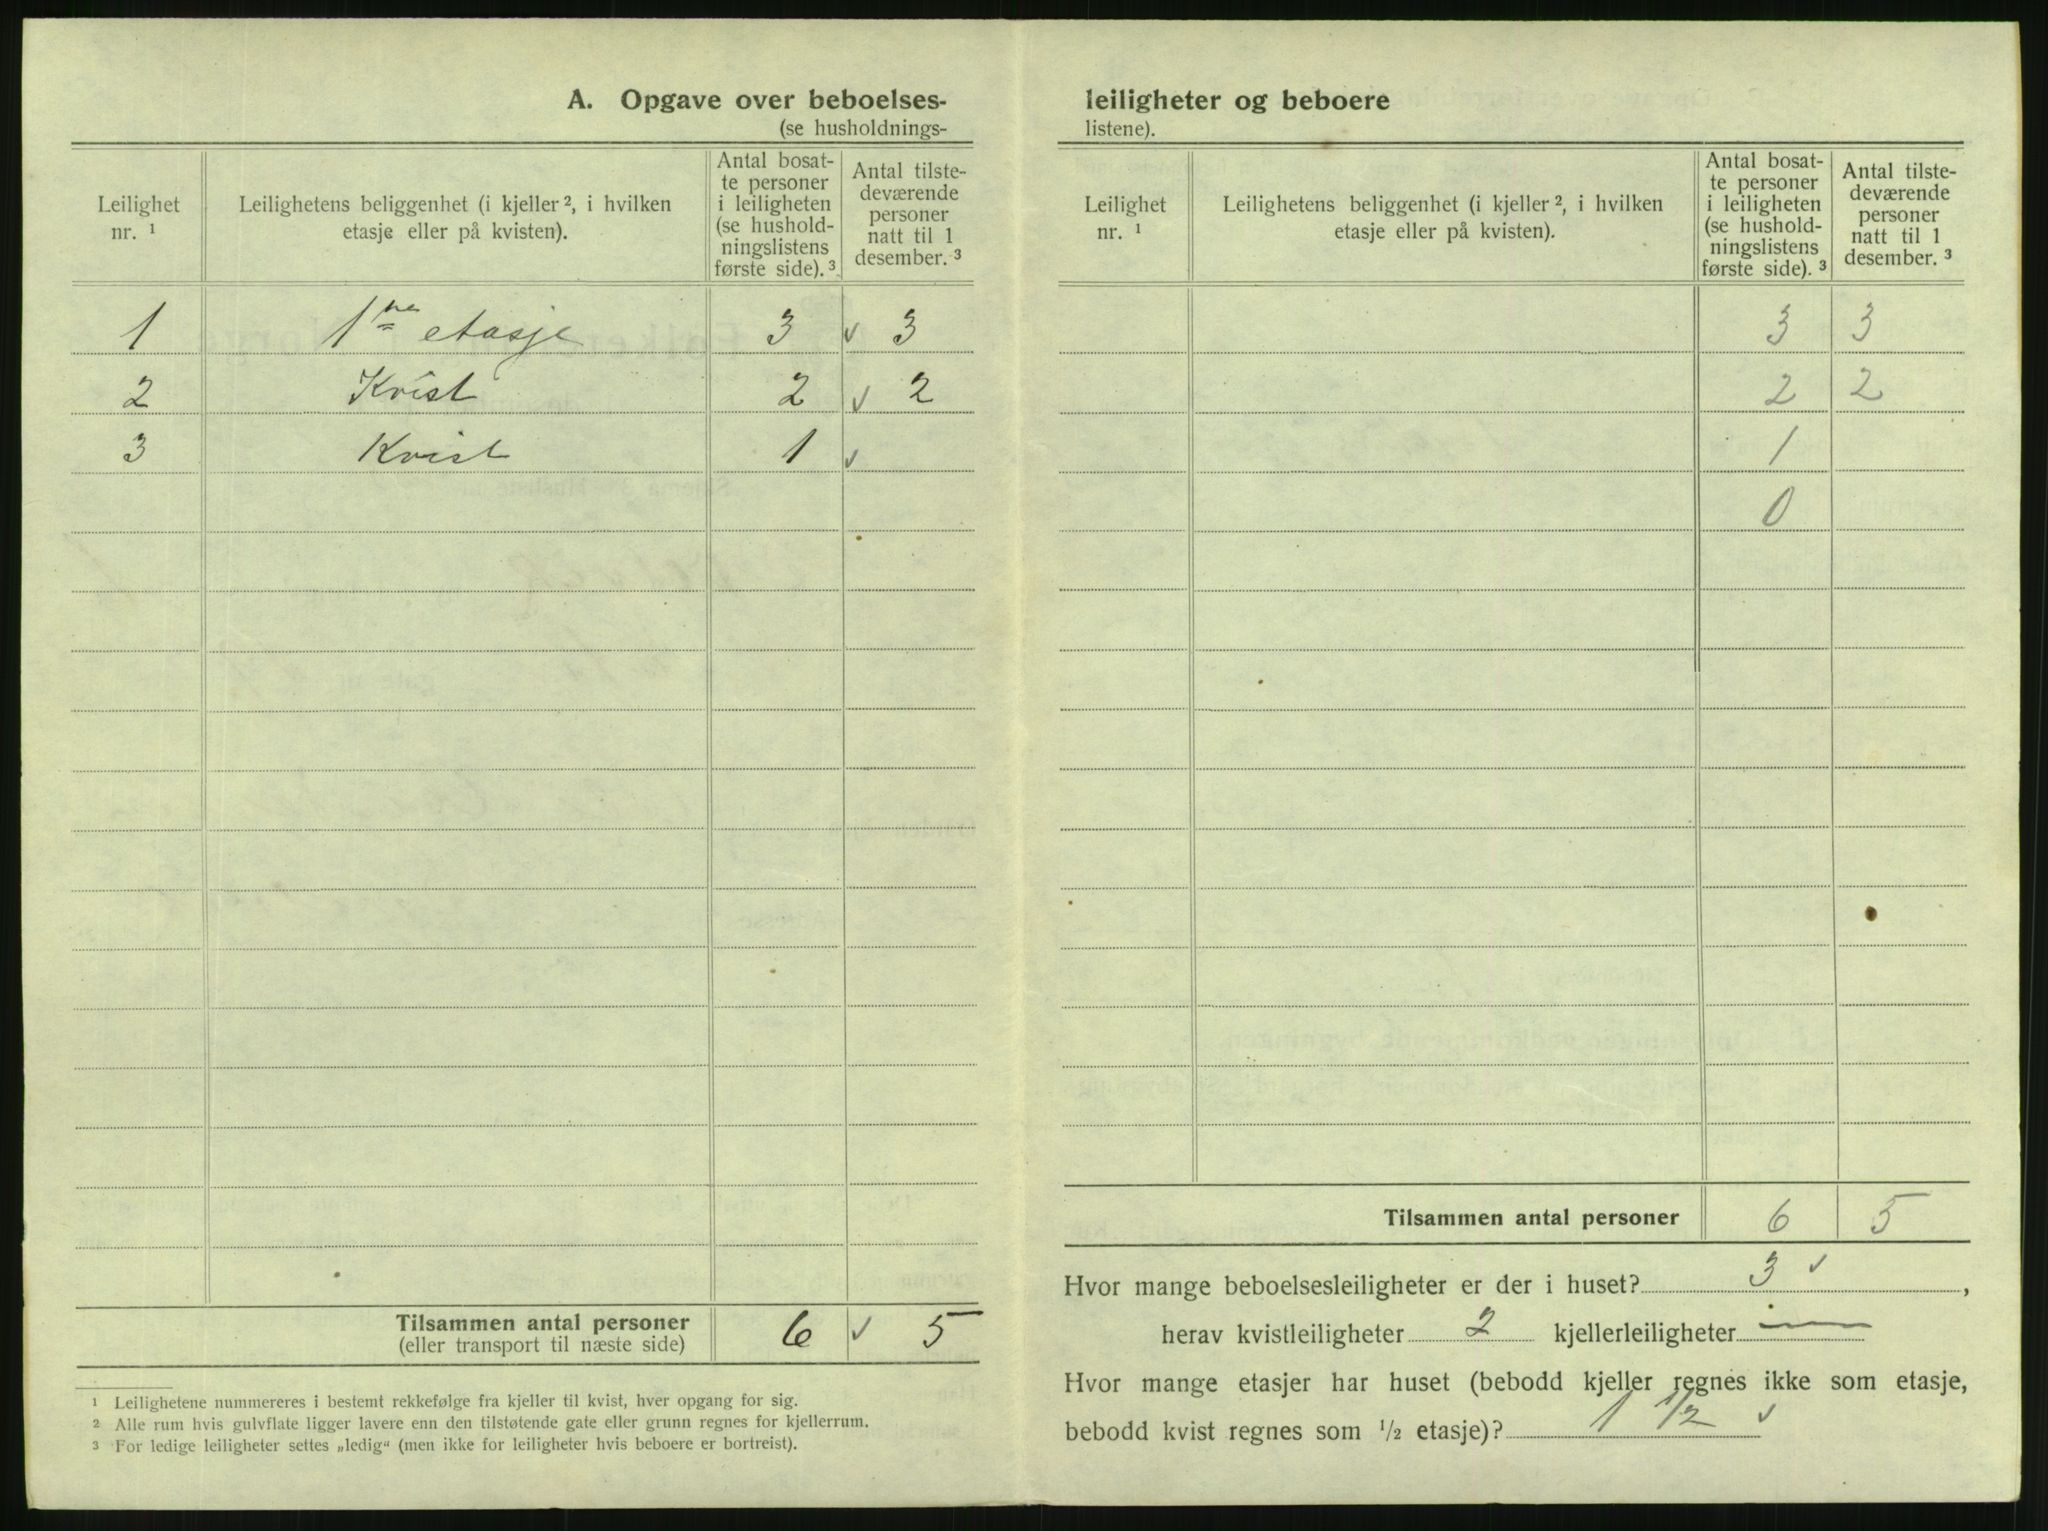 A. Opgave over beboelses-
(se husholdnings-
Leilighet nr. ¹
Leilighetens beliggenhet (i kjeller ², i hvilken etasje eller på kvisten).
Antal bosat-
te personer
i leiligheten
(se hushold-
ningslistens
første side). ³
Antal tilste-
deværende
personer
natt til 1
desember. ³
1 1ne etasje 3 v 3
2 Kvist 2 v 2
3 Kvist 1 v
Tilsammen antal personer 6 v 5
(eller transport til næste side)
¹ Leilighetene nummereres i bestemt rekkefølge fra kjeller til kvist, hver opgang for sig.
² Alle rum hvis gulvflate ligger lavere enn den tilstøtende gate eller grunn regnes for kjellerrum.
³ For ledige leiligheter settes „ledig“ (men ikke for leiligheter hvis beboere er bortreist).
leiligheter og beboere
listene).
Leilighet nr. ¹
Leilighetens beliggenhet (i kjeller ², i hvilken etasje eller på kvisten).
Antal bosat-
te personer
i leiligheten
(se hushold-
ningslistens
første side). ³
Antal tilste-
deværende
personer
natt til 1
desember. ³
3 3
2 2
1
0
Tilsammen antal personer 6 5
Hvor mange beboelsesleiligheter er der i huset? 3 v,
herav kvistleiligheter 2 kjellerleiligheter —
Hvor mange etasjer har huset (bebodd kjeller regnes ikke som etasje,
bebodd kvist regnes som ½ etasje)? 1 ½ v